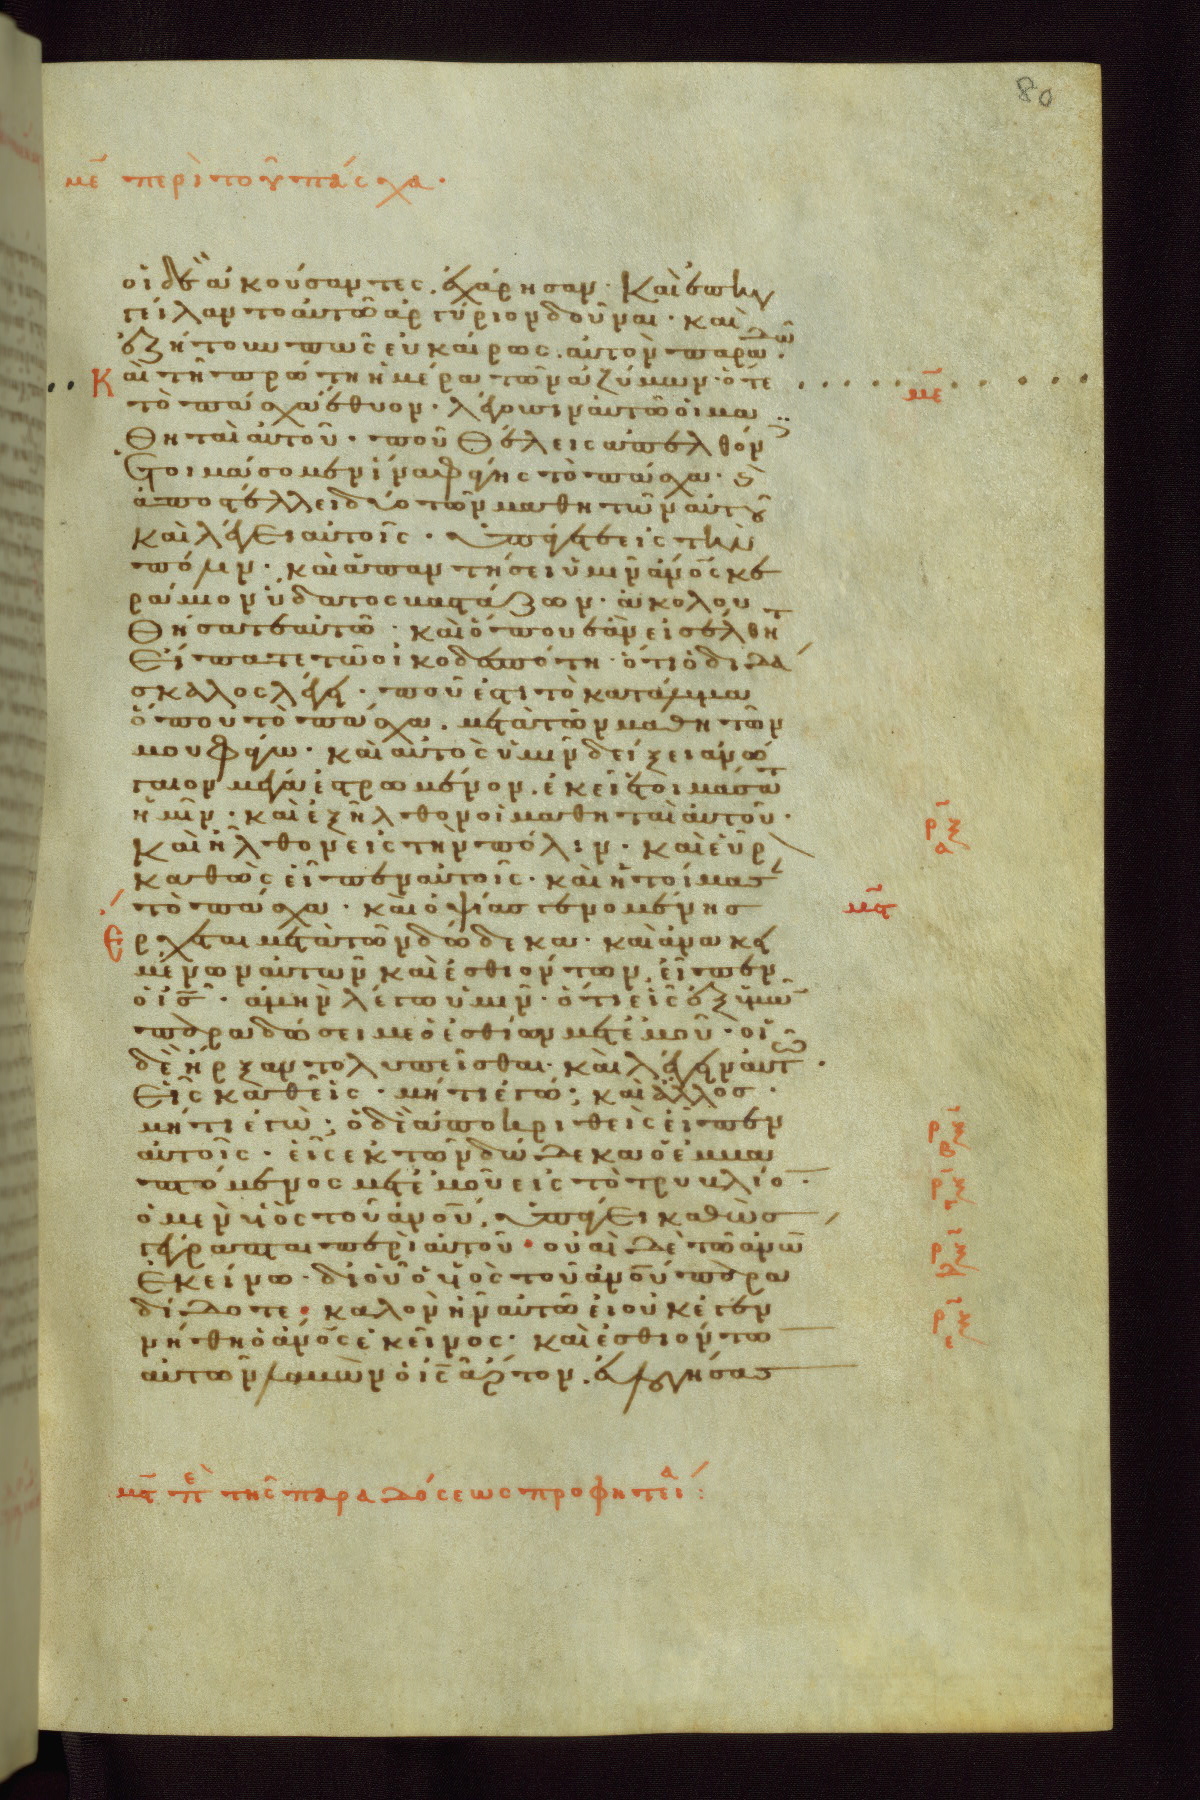 80
με περὶ τοῦ πάσχα.
οἱ δὲ ἀκούσαντες, ἐχάρησαν. καὶ ἐπηγ
γείλαντο αὐτῶ ἀργύριον δοῦναι. καὶ
ἐζήτουν πῶς εὐκαίρως αὐτὸν παραδῶ.
Καὶ τῆ πρώτη ἡμέρα τῶν ἀζύμων. ὅτε
με
τὸ πάσχα ἔθυον. λέγουσιν αὐτῶ οἱ μα
θηταὶ αὐτοῦ. ποῦ θέλεις ἀπελθόν
ετοιμάσομεν ἵνα φάγης τὸ πάσχα. καὶ
ἀποστέλλει δύο τῶν μαθητῶν αὐτοῦ
καὶ λέγει αὐτοῖς. ὑπάγετε εἰς τὴν
πόλιν. καὶ ἀπαντήσει ὑμῖν ἀνος κε
ράμιον ὕδατος βαστάζων. ἀκολου
θήσατε αὐτῶ. καὶ ὅπου ἐὰν εἰσέλθη
εἴπατε τῶ οἰκοδεσπότη. ὅτι ὁ διδά
σκαλος λέγει. ποῦ ἐστι τὸ κατάλυμα
ὅπου τὸ πάσχα. μετὰ τῶν μαθητῶν
μου φάγω. καὶ αὐτὸς ὑμῖν δείξει ἀνώ
γαιον μέγα ἐστρωμένον. ἐκεῖ ἑτοιμάσατε
ἡμῖν. καὶ ἐξῆλθον οἱ μαθηταὶ αὐτοῦ.
ρξα
καὶ ἦλθον εἰς τὴν πόλιν. καὶ εὗρον
καθὼς εἶπεν αὐτοῖς. καὶ ἡτοίμασαν
τὸ πάσχα. καὶ ὀψίας γενομένης
μστ
Ἔρχεται μετὰ τῶν δώδεκα. καὶ ἀνακει
μένων αὐτῶν καὶ ἐσθιόντων, εἶπεν
ὁ ις. ἀμὴν λέγω ὑμῖν. ὅτι εἷς ἐξ ὑμῶν
παραδώσει με ὁ ἐσθίων μετ' ἐμοῦ. οἱ
δὲ ἤρξαντο λυπεῖσθαι. καὶ λέγειν αὐτῶ.
εἷς καθεῖς. μήτι ἐγώ; καὶ ἄλλος.
μήτι ἐγώ; ὁ δὲ ἀποκριθεὶς εἶπεν
ρξβ
αὐτοῖς. εἷς ἐκ τῶν δώδεκα ὁ ἐμβα
πτόμενος μετ' ἐμοῦ εἰς τὸ τρυβλίον.
ρξγ
ὁ μὲν υἱὸς τοῦ ἀνου, ὑπάγει καθὼς
γέγραπται περὶ αὐτοῦ. οὐαὶ δὲ τῶ ανω
ρξδ
ἐκείνω. δι' οὗ ὁ υἱὸς τοῦ ἀνου παρα
δίδοτε. καλὸν ἦν αὐτῶ εἰ οὐκ ἐγεν
ρξε
νήθη ὁ ἀνος ἐκεῖνος. καὶ ἐσθιόντων
αὐτῶν λαβὼν ὁ ις ἄρτον, εὐλογήσας
μστ πε τῆς παραδόσεως προφητεία: